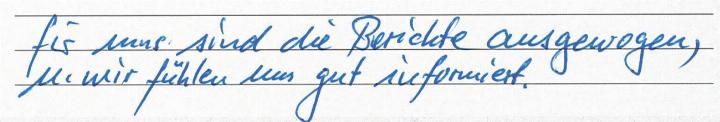 für uns sind die Berichte ausgewogen,
u. wir fühlen uns gut informiert.